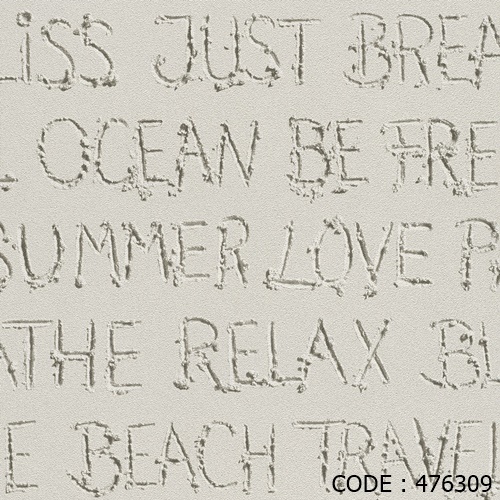 LiSS JUST BREA
L OCEAN BE FRE
SUMMER LOVE P
ATHE RELAX BL
E BEACH TRAVEL
CODE : 476309